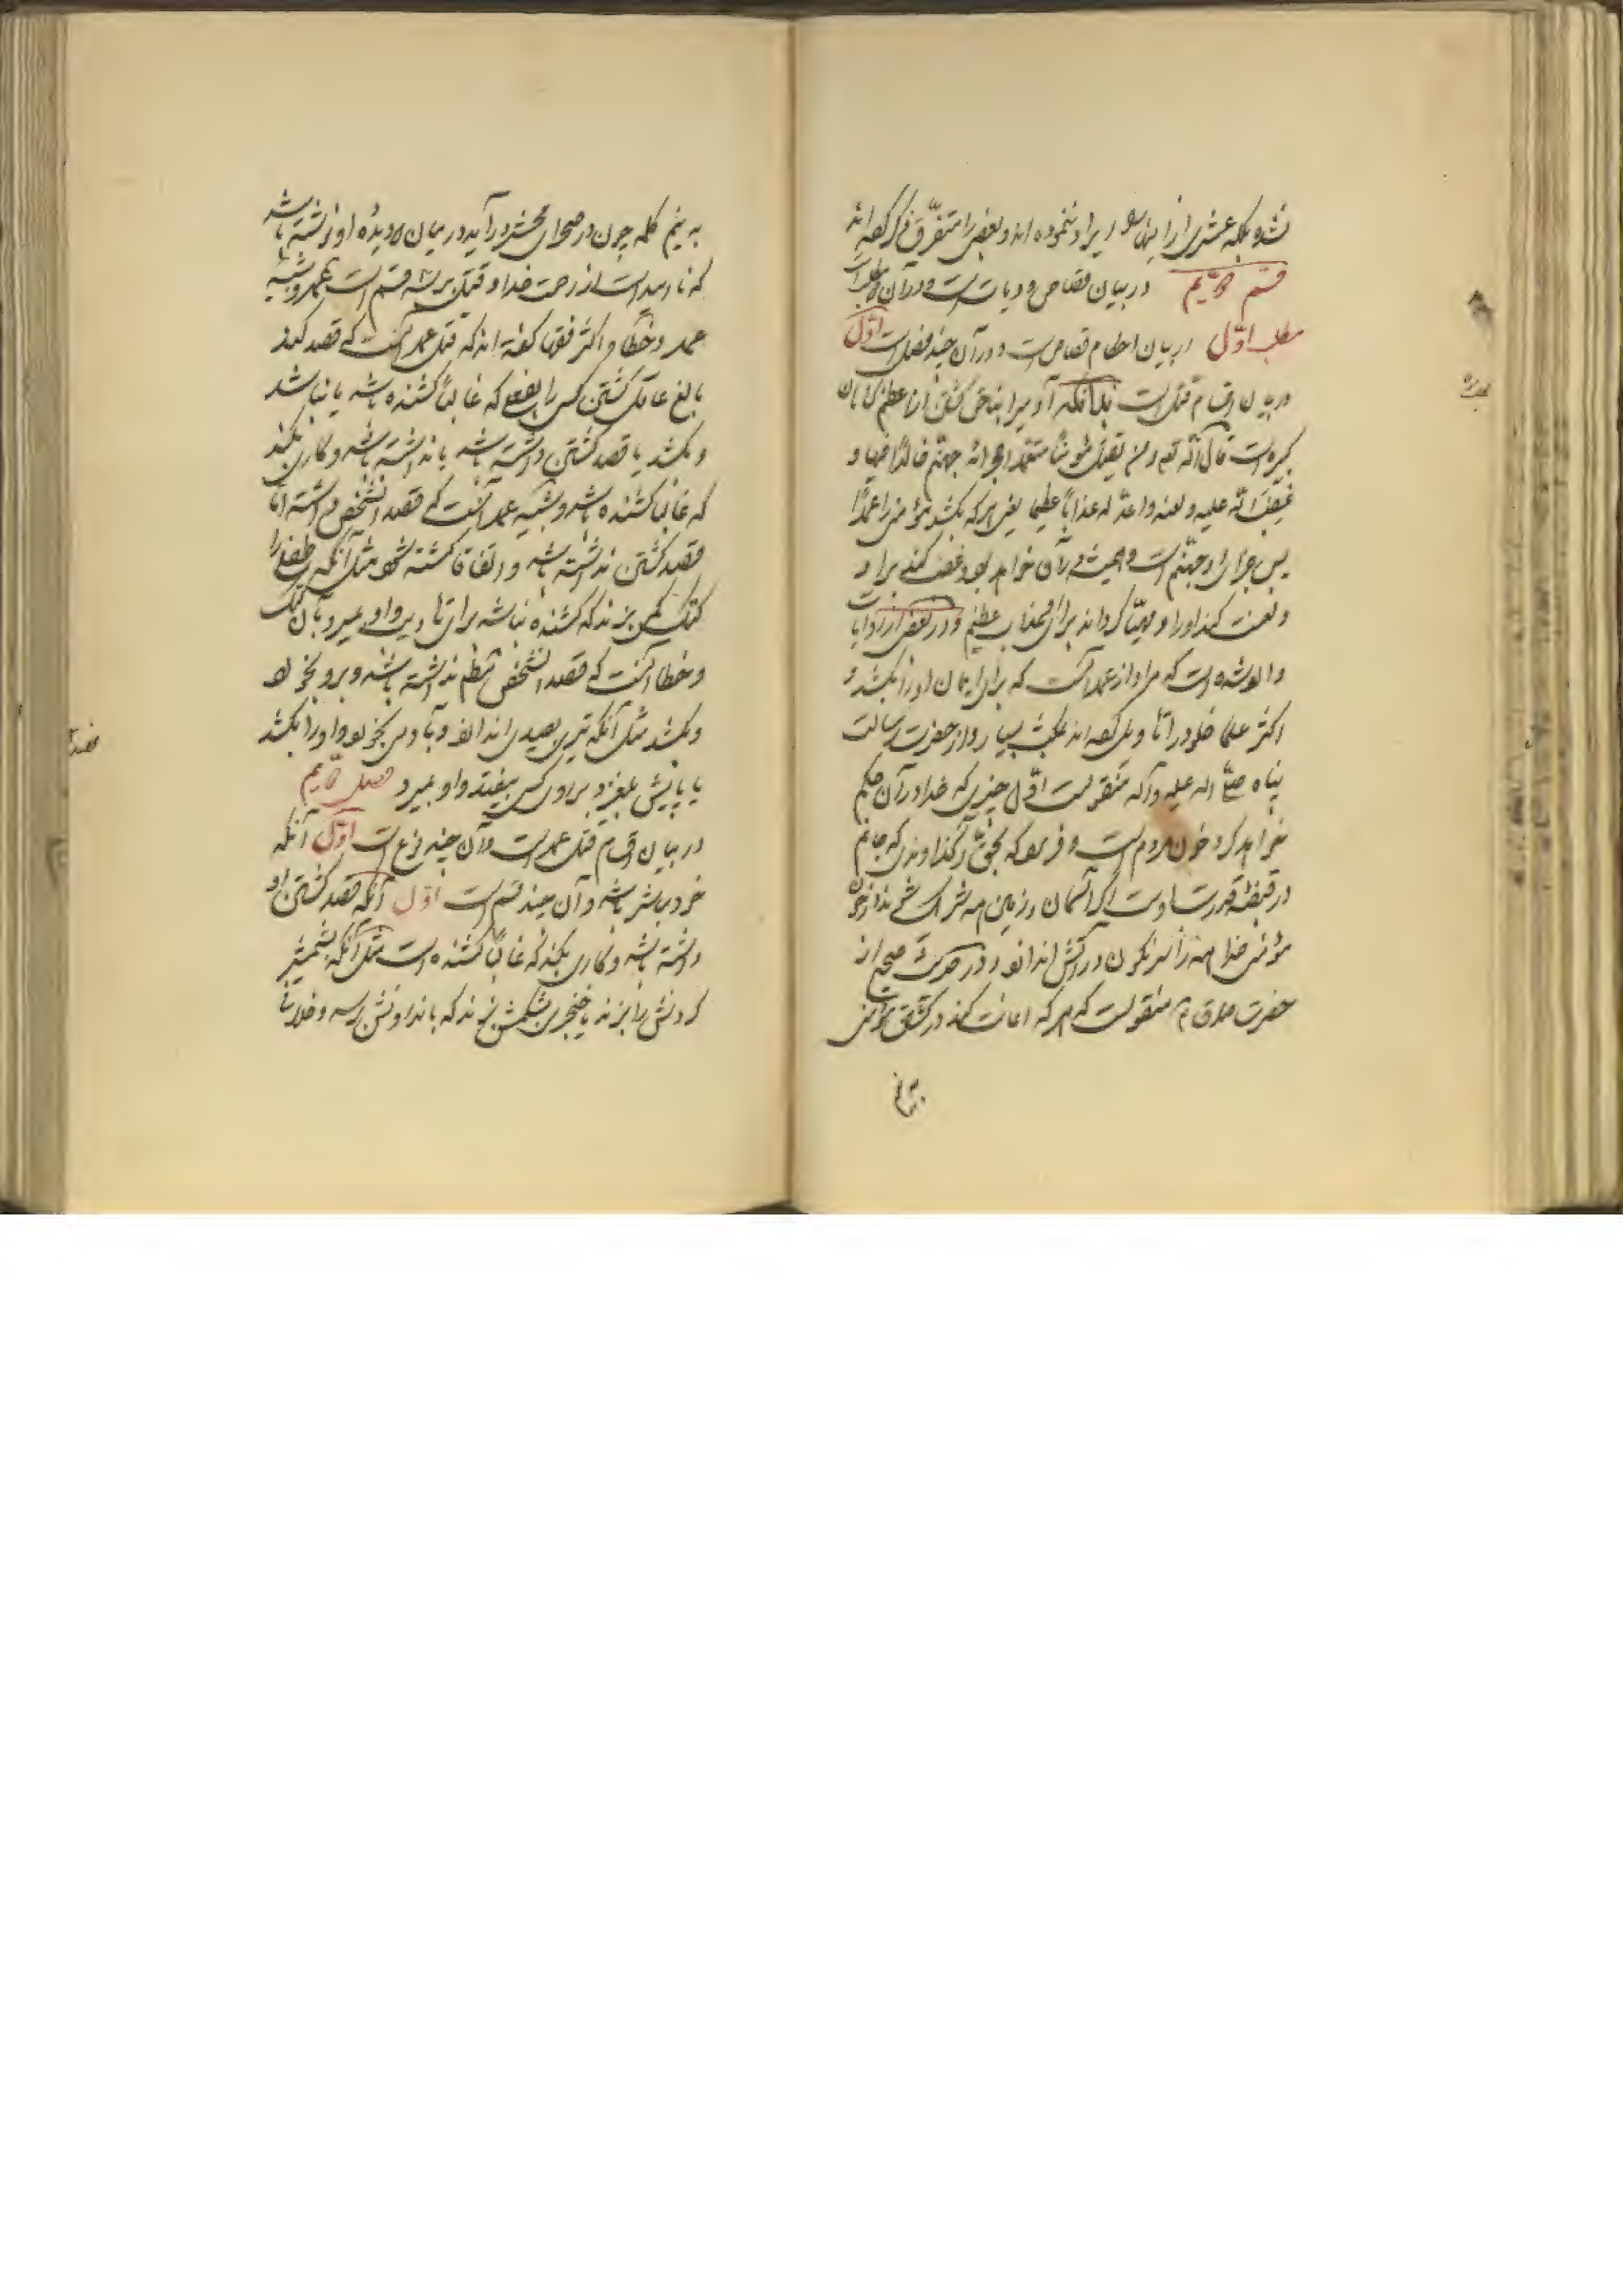 نشده بلکه عشری از اینها را ایراد ننموده‌اند و بعضی را متفرق ذکر کرده‌اند
قسم دویم در بیان قصاص و دیات است و در آن دو مطلب است
مطلب اول در بیان احکام قصاص است و در آن چند فصل است اول
در بیان اقسام قتل است بدانکه آدمیرا بناحق کشتن از اعظم گناهان
کبیره است قال الله تعه و من یقتل مؤمنا متعمدا فجزائه جهنم خالدا فیها و
غضب الله علیه و لعنه و اعد له عذابا عظیما یعنی هر که بکشد مؤمنی را عمدا
پس جزای او جهنم است و همیشه در آن خواهد بود و غضب کند خدا بر او
و لعنت کند او را و مهیا گرداند برای او عذاب عظیم و در بعضی از روایات
وارد شده است که مراد از عمد آنست که برای ایمان او را بکشد و
اکثر علما خلود را تاویل کرده‌اند بمکث بسیار و از حضرت رسالت
پناه صلی الله علیه و آله منقولست اول چیزی که خدا در آن حکم
خواهد کرد خون مردم است و فرمود که بحق آن خداوندی که جانم
در قبضه قدرت اوست اگر آسمان و زمین همه شریک شوند در خون
مؤمنی خدا همه را سرنگون در آتش اندازد و در حدیث صحیح از
حضرت صادق ع منقولست که هر که اعانت کند در کشتن مؤمنی
به نیم
به نیم کلمه چون در صحرای محشر در آید در میان دو دیده او نوشته باشد
که ناامید است از رحمت خدا و قتل بر سه قسم است عمد و شبیه
عمد و خطا و اکثر فقها گفته‌اند که قتل عمد آنست که قصد کند
بالغ عاقل کشتن کسی را بفعلی که غالبا کشنده باشد یا نباشد
و بکشد یا قصد کشتن داشته باشد یا نداشته باشد و کاری بکند
که غالبا کشنده باشد و شبیه عمد آنست که قصد آنشخص داشته اما
قصد کشتن نداشته باشد و اتفاقا کشته شود مثل آنکه طفل را
کتک کمی بزند که کشنده نباشد برای تادیب و او بمیرد بآن کتک
و خطا آنست که قصد آنشخص بظلم نداشته باشد و بر او بخورد
و بکشد مثل آنکه تیری بصیدی اندازد و بآدمی بخورد و او را بکشد
یا پایش بلغزد بر روی کسی بیفتد و او بمیرد فصل دویم
در بیان اقسام قتل عمد است و آن چند نوع است اول آنکه
خود مباشر باشد و آن چند قسم است اول آنکه قصد کشتن او
داشته باشد و کاری بکند که غالبا کشنده است مثل آنکه بشمشیر
گردنش را بزند یا خنجری بشکمش بزند که باندرونش رسد و خلاف